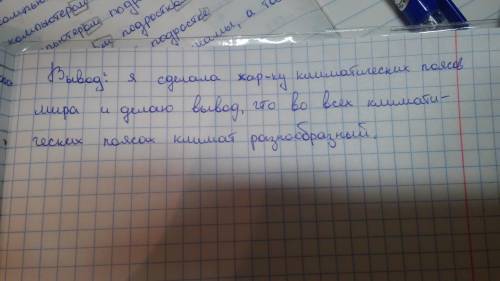 компьютерам подростко
компьютерам подростко
мамы, а та
Вывод: я сделала хар-ку климатических поясов
мира и делаю вывод, что во всех климати-
ческих поясах климат разнообразный.